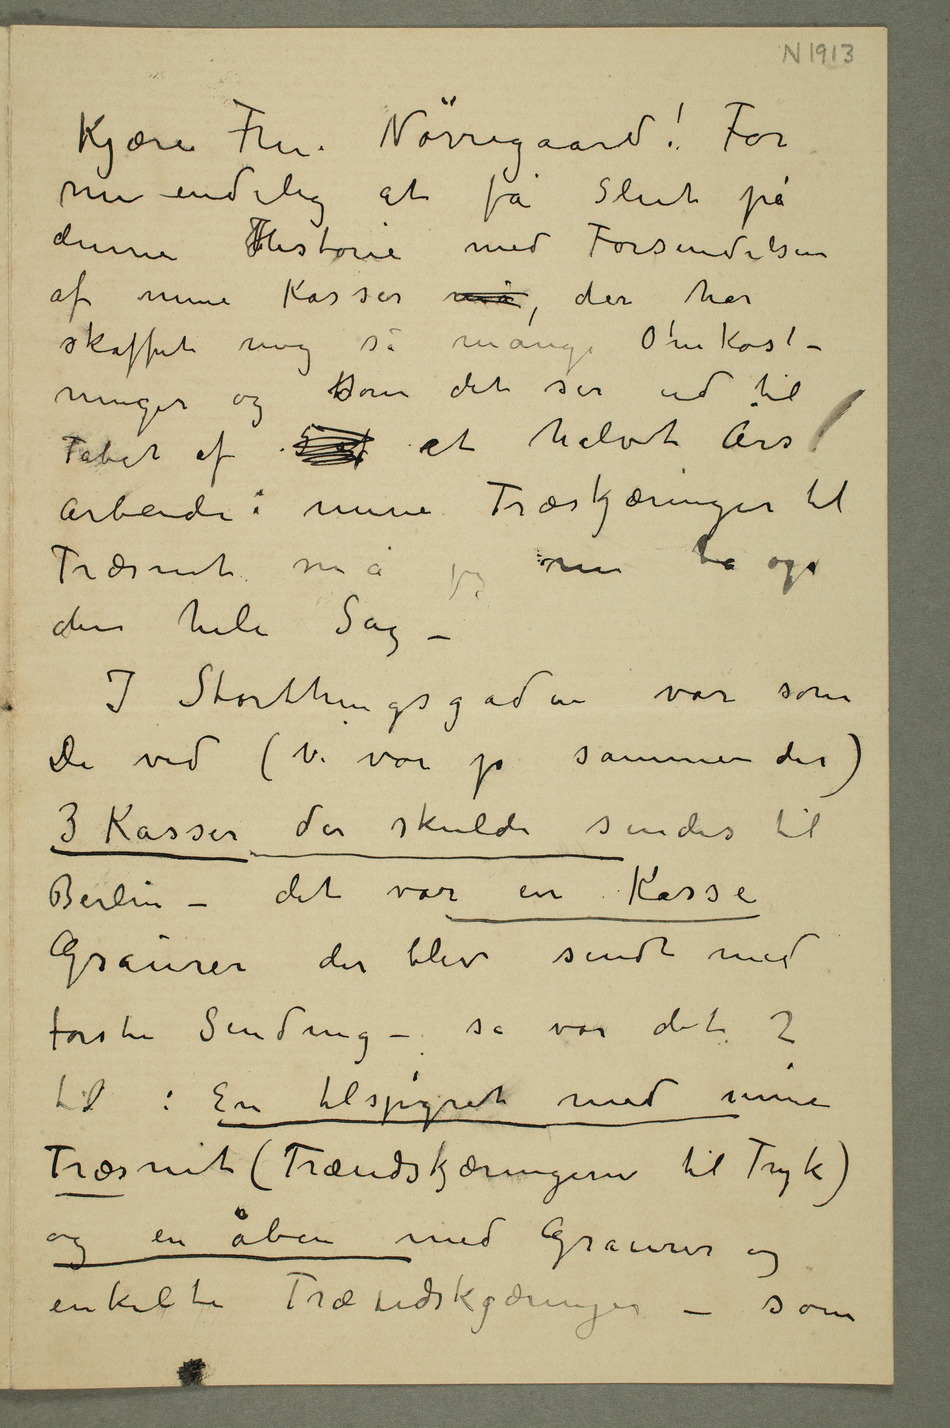 N 1913
Kjære Fru Nörregaard! For
nu endelig at få Slut på
denne Historie med Forsendelsen
af mine Kasser må, der har
skaffet mig så mange Omkost–
ninger og som det ser ud til
Tabet af et halvt Års
Arbeide i mine Træskjæringer til
Træsnit må jeg nu ta op
den hele Sag –
I Storthingsgaden var som
De ved (Vi var jo sammen der)
3 Kasser der skulde sendes til
Berlin – det var en Kasse
Graurer der blev sendt med
første Sending – så var det 2
til : En tilspigret med mine
Træsnit (Træudskjæringerne til Tryk)
og en åben med Graurer og
enkelte Træudskjæringer – som